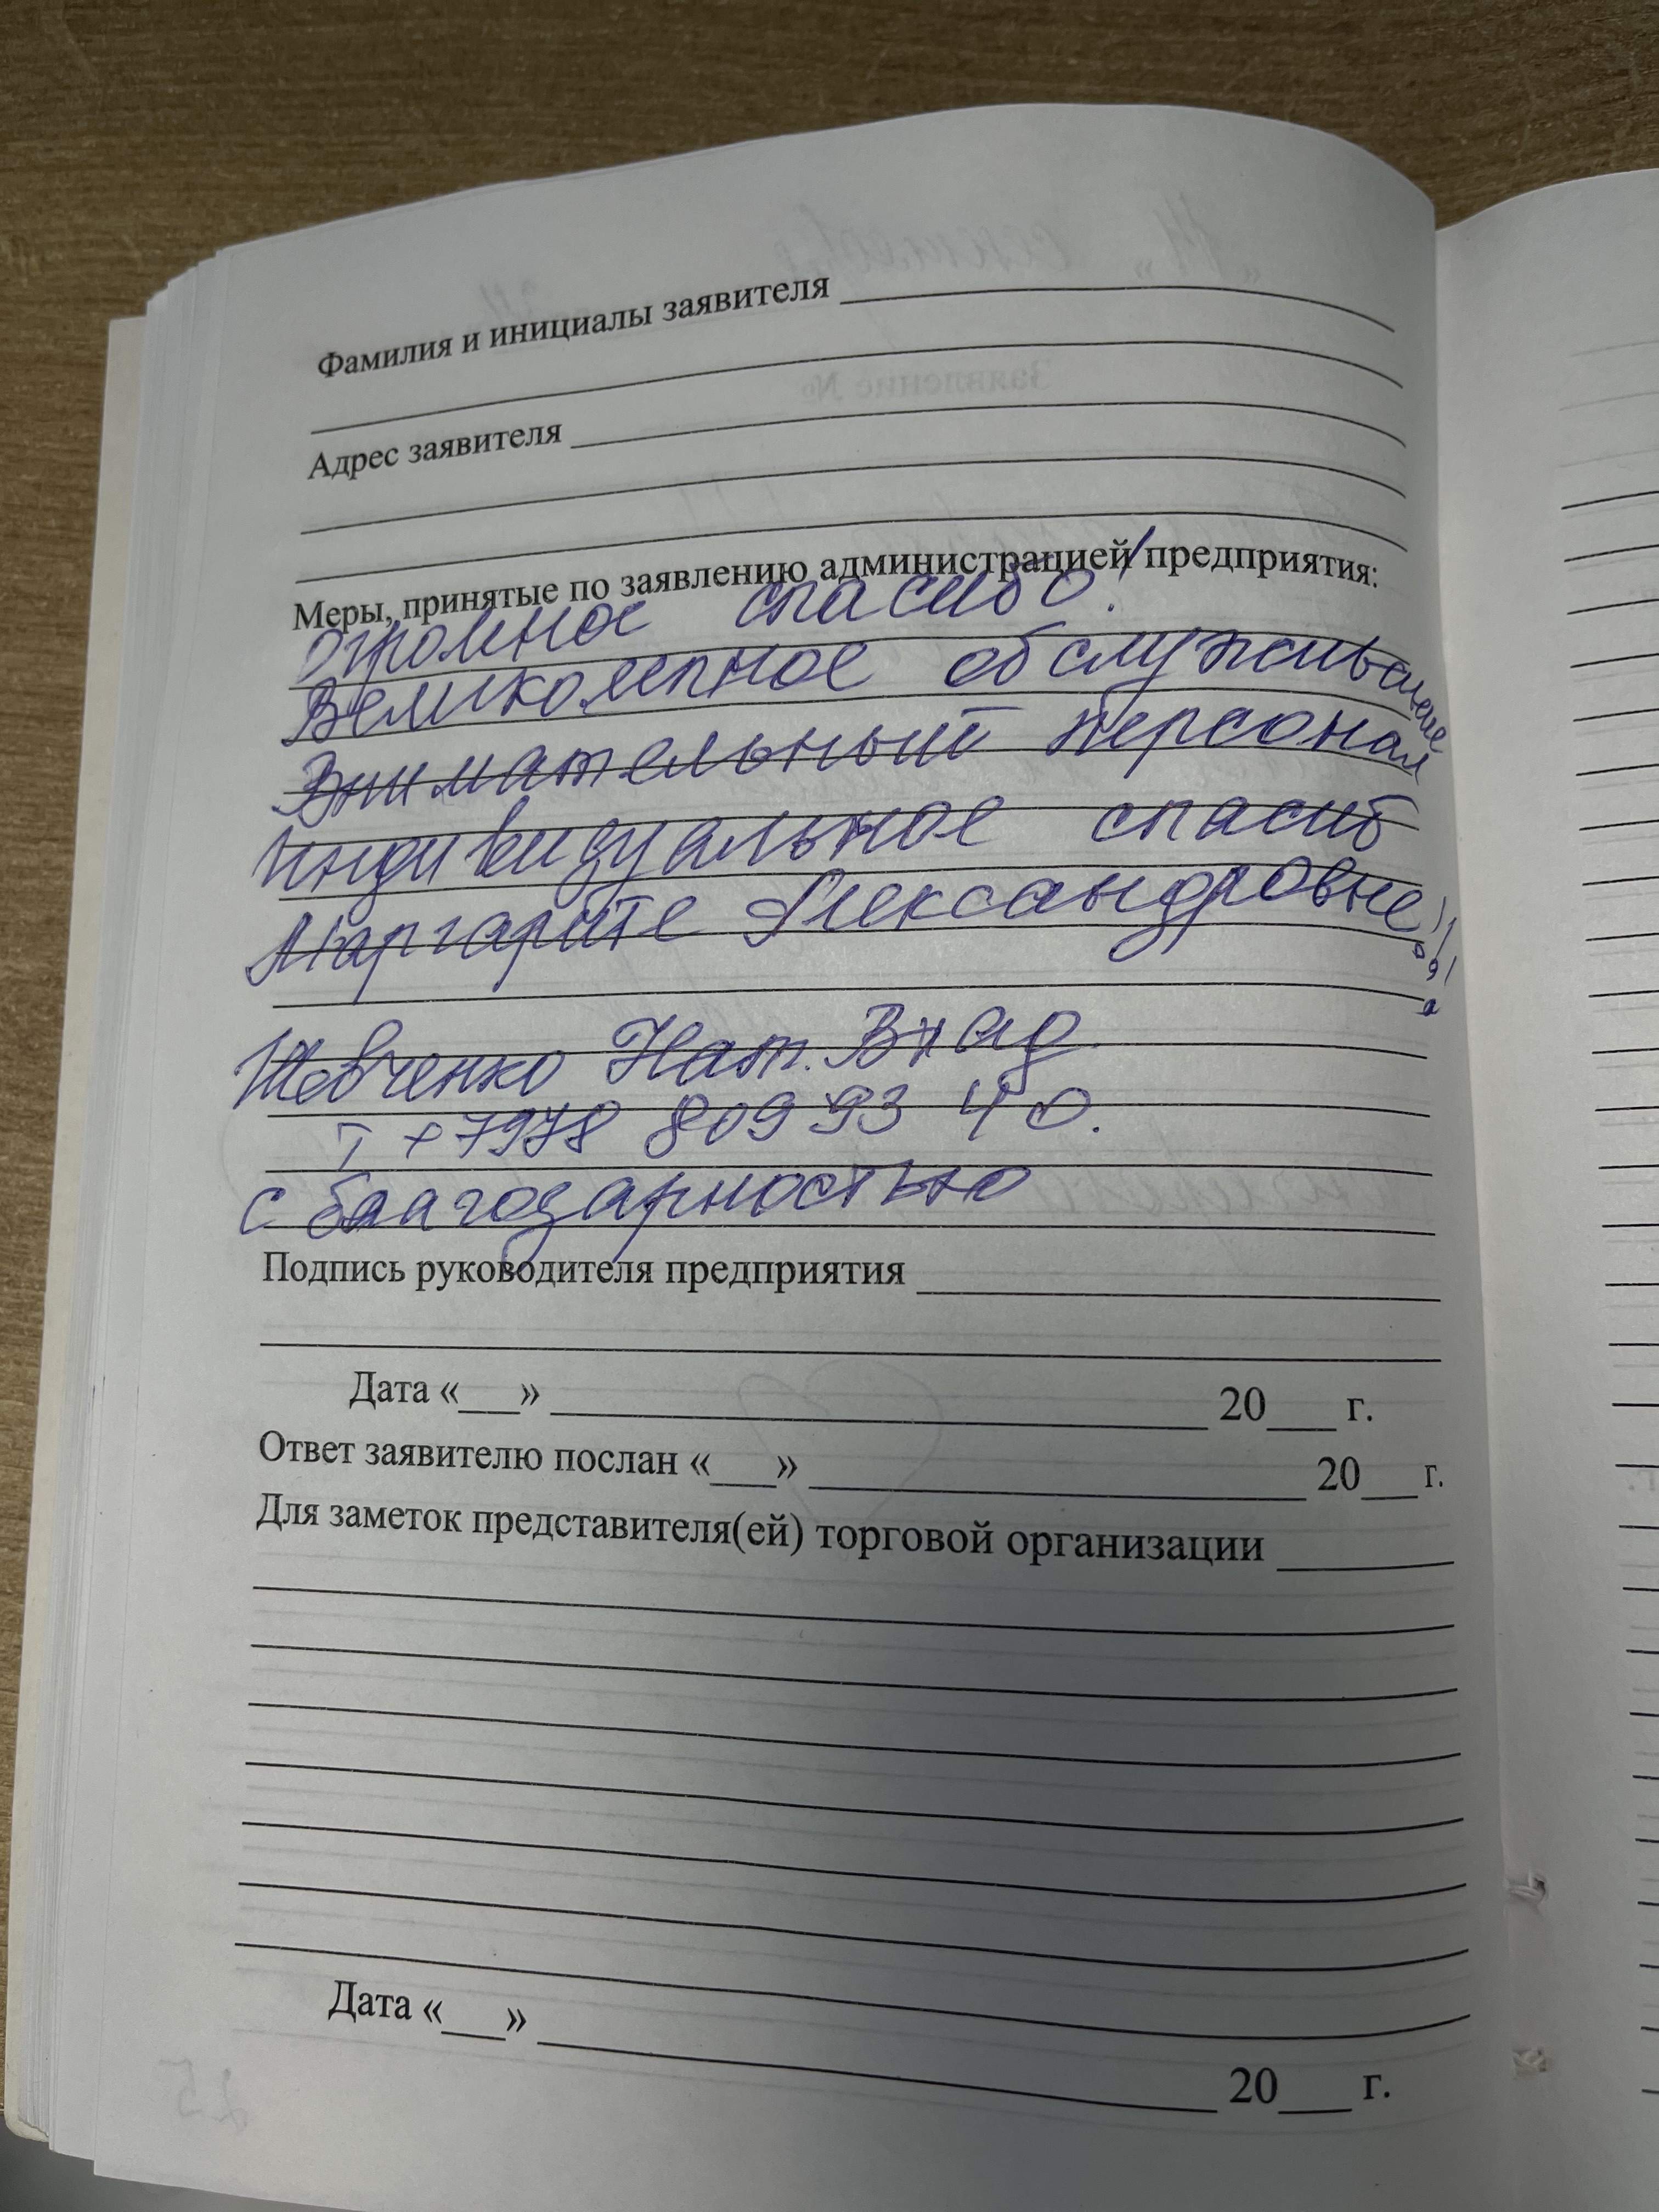 Фамилия и инициалы заявителя
Адрес заявителя
Меры, принятые по заявлению администрацией предприятия:
Огромное спасибо!
Великолепное обслуживание
Внимательный персонал
Индивидуальное спасиб
Маргарите Александровне!!!
Шевченко Нат. Влад.
т +7978 809 93 40.
с благодарностью
Подпись руководителя предприятия
Дата «___» 20___ г.
Ответ заявителю послан «___» 20___ г.
Для заметок представителя(ей) торговой организации
Дата «___» 20___ г.